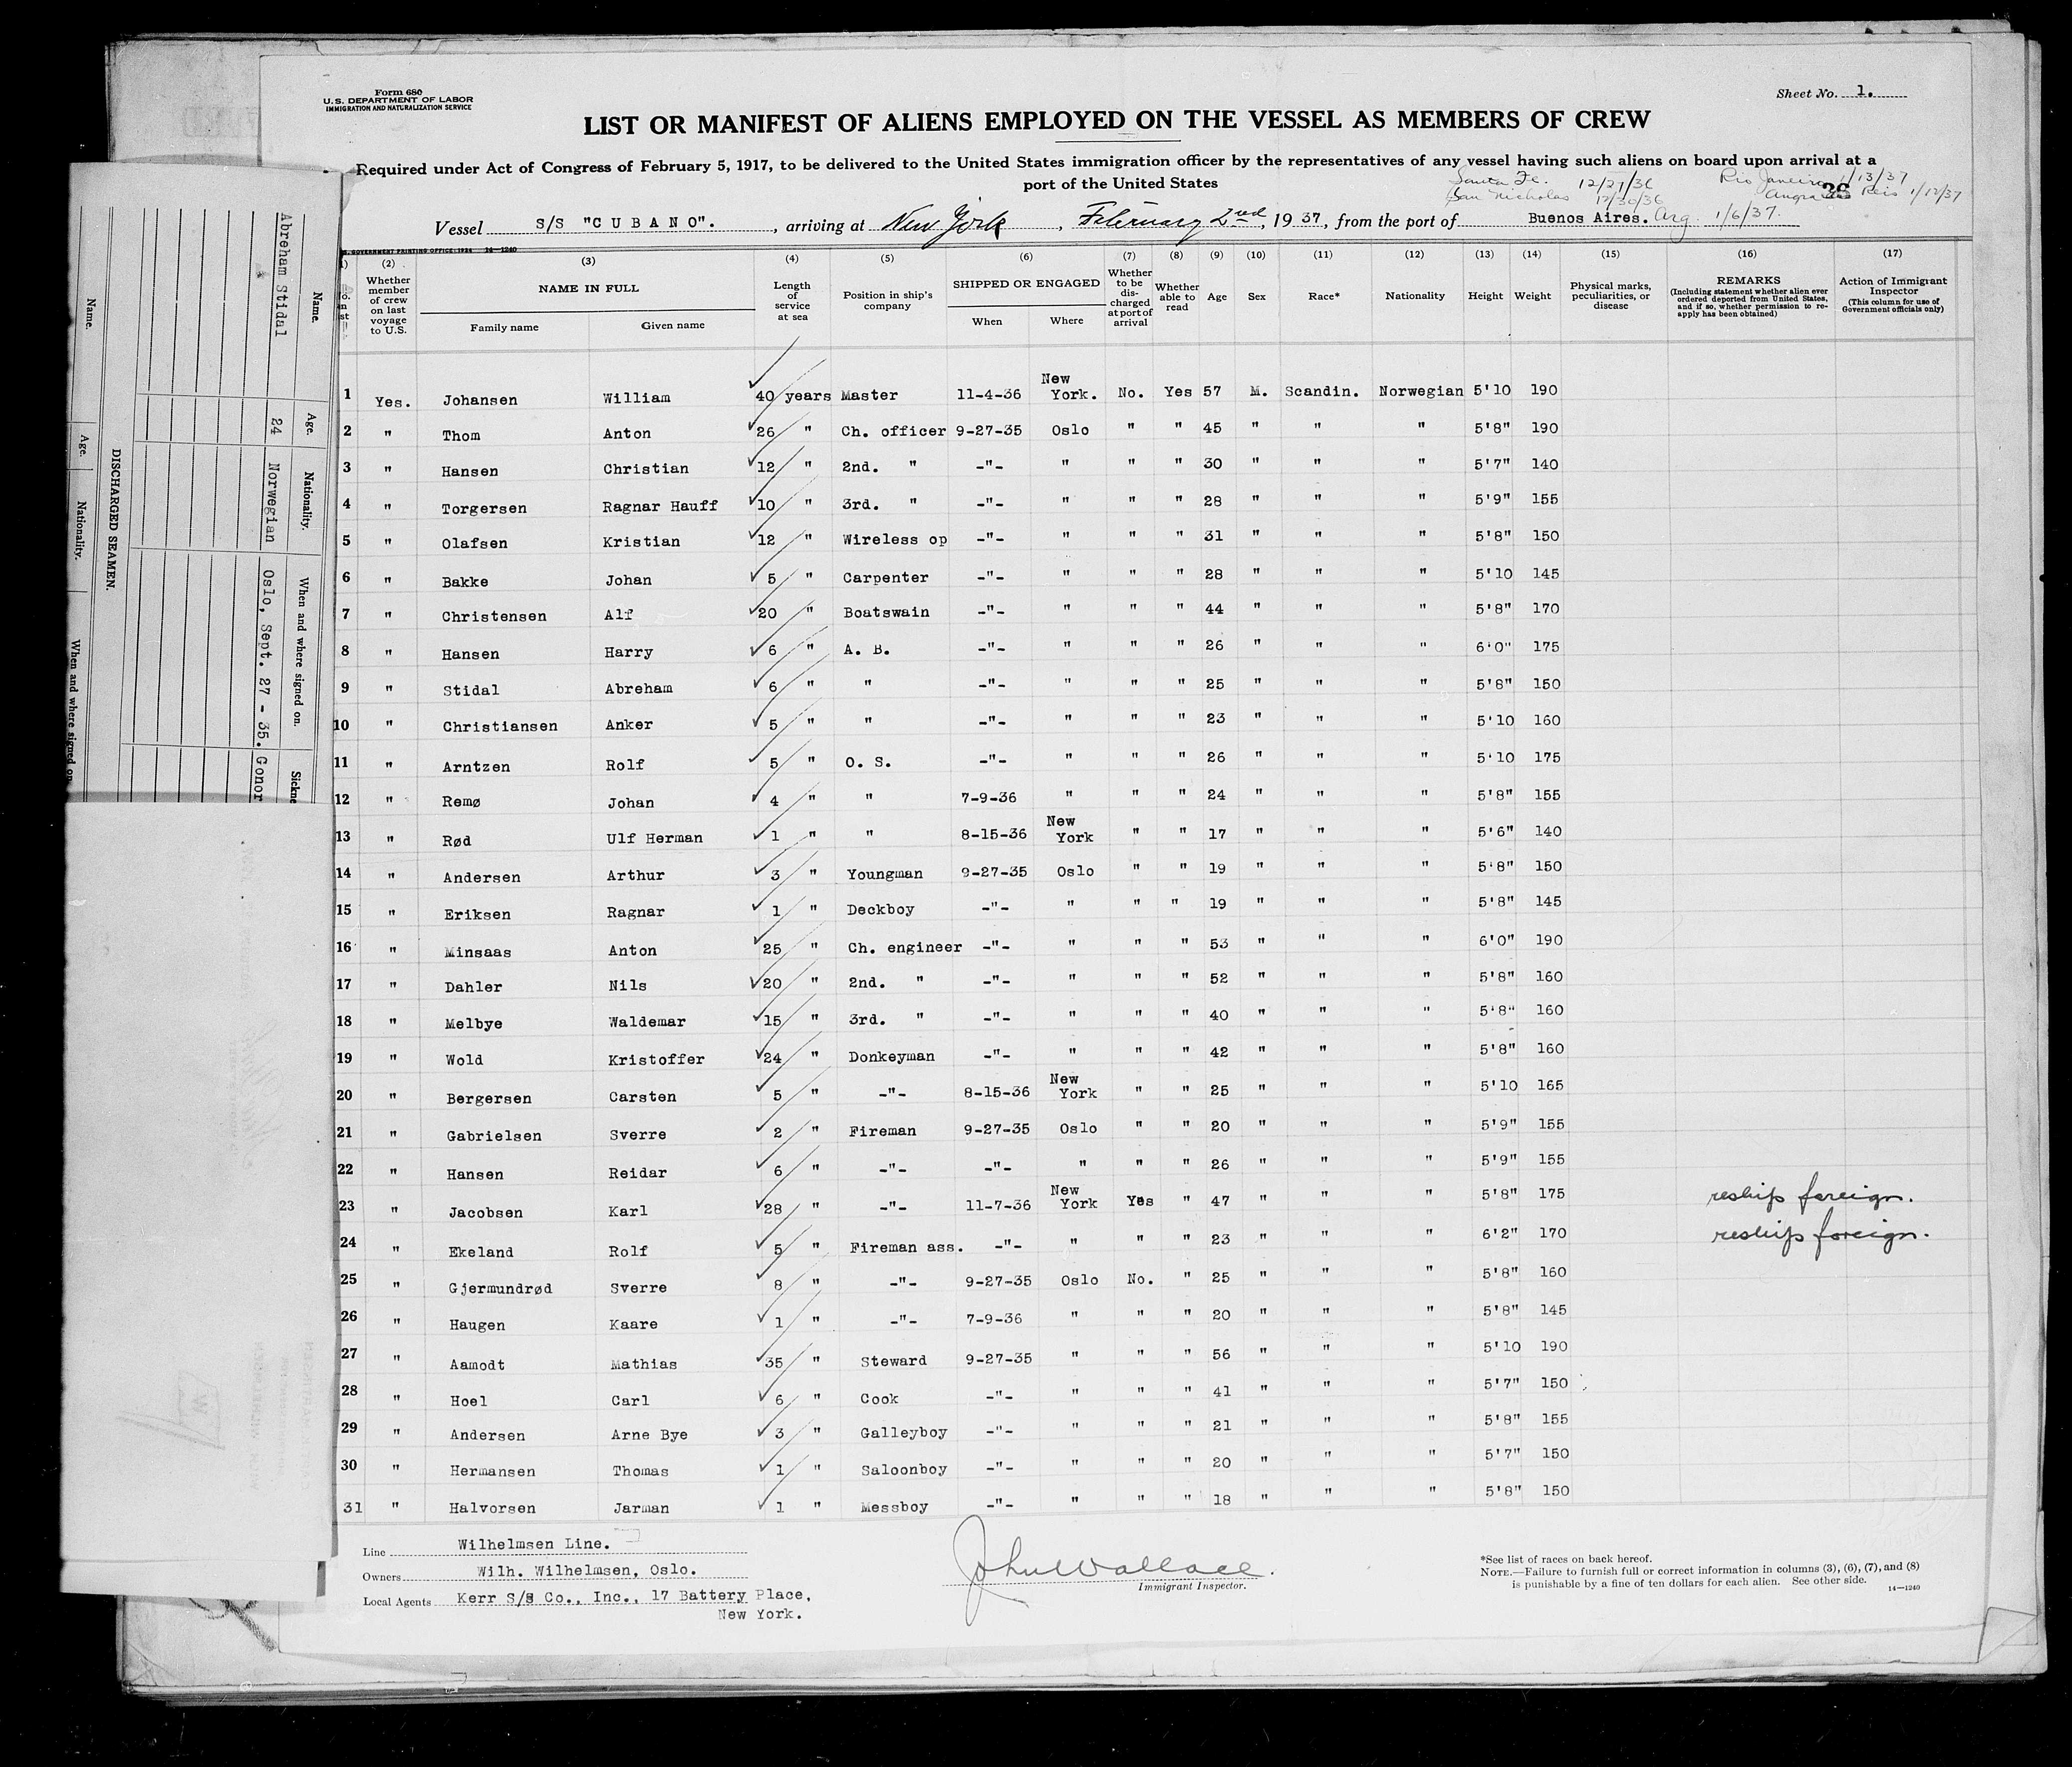 Form 680
U.S. DEPARTMENT OF LABOR
IMMIGRATION AND NATURALIZATION SERVICE
Sheet No. 1.
LIST OR MANIFEST OF ALIENS EMPLOYED ON THE VESSEL AS MEMBERS OF CREW
Required under Act of Congress of February 5, 1917, to be delivered to the United States immigration officer by the representatives of any vessel having such aliens on board upon arrival at a
port of the United States
Santa Fe. 12/27/36 Rio Janeiro 1/13/37
San Nicholas 12/30/36 Angra Reis 1/12/37
Vessel S/S "CUBANO". , arriving at New York , February 2nd, 1937, from the port of Buenos Aires. Arg. 1/6/37.
GOVERNMENT PRINTING OFFICE: 1934 14—1240
(2) (3) (4) (5) (6) (7) (8) (9) (10) (11) (12) (13) (14) (15) (16) (17)
Whether member of crew on last voyage to U.S.
NAME IN FULL
Family name Given name
Length of service at sea
Position in ship's company
SHIPPED OR ENGAGED
When Where
Whether to be discharged at port of arrival
Whether able to read
Age Sex Race* Nationality Height Weight
Physical marks, peculiarities, or disease
REMARKS
(Including statement whether alien ever ordered deported from United States, and if so, whether permission to reapply has been obtained)
Action of Immigrant Inspector
(This column for use of Government officials only)
1 Yes. Johansen William 40 years Master 11-4-36 New York. No. Yes 57 M. Scandin. Norwegian 5'10 190
2 " Thom Anton 26 " Ch. officer 9-27-35 Oslo " " 45 " " " 5'8" 190
3 " Hansen Christian 12 " 2nd. " -"- " " " 30 " " " 5'7" 140
4 " Torgersen Ragnar Hauff 10 " 3rd. " -"- " " " 28 " " " 5'9" 155
5 " Olafsen Kristian 12 " Wireless op -"- " " " 31 " " " 5'8" 150
6 " Bakke Johan 5 " Carpenter -"- " " " 28 " " " 5'10 145
7 " Christensen Alf 20 " Boatswain -"- " " " 44 " " " 5'8" 170
8 " Hansen Harry 6 " A. B. -"- " " " 26 " " " 6'0" 175
9 " Stidal Abreham 6 " " -"- " " " 25 " " " 5'8" 150
10 " Christiansen Anker 5 " " -"- " " " 23 " " " 5'10 160
11 " Arntzen Rolf 5 " O. S. -"- " " " 26 " " " 5'10 175
12 " Remø Johan 4 " " 7-9-36 " " " 24 " " " 5'8" 155
13 " Rød Ulf Herman 1 " " 8-15-36 New York " " 17 " " " 5'6" 140
14 " Andersen Arthur 3 " Youngman 9-27-35 Oslo " " 19 " " " 5'8" 150
15 " Eriksen Ragnar 1 " Deckboy -"- " " " 19 " " " 5'8" 145
16 " Minsaas Anton 25 " Ch. engineer -"- " " " 53 " " " 6'0" 190
17 " Dahler Nils 20 " 2nd. " -"- " " " 52 " " " 5'8" 160
18 " Melbye Waldemar 15 " 3rd. " -"- " " " 40 " " " 5'8" 160
19 " Wold Kristoffer 24 " Donkeyman -"- " " " 42 " " " 5'8" 160
20 " Bergersen Carsten 5 " -"- 8-15-36 New York " " 25 " " " 5'10 165
21 " Gabrielsen Sverre 2 " Fireman 9-27-35 Oslo " " 20 " " " 5'9" 155
22 " Hansen Reidar 6 " -"- -"- " " " 26 " " " 5'9" 155
23 " Jacobsen Karl 28 " -"- 11-7-36 New York Yes " 47 " " " 5'8" 175 reship foreign.
24 " Ekeland Rolf 5 " Fireman ass. -"- " " " 23 " " " 6'2" 170 reship foreign.
25 " Gjermundrød Sverre 8 " -"- 9-27-35 Oslo No. " 25 " " " 5'8" 160
26 " Haugen Kaare 1 " -"- 7-9-36 " " " 20 " " " 5'8" 145
27 " Aamodt Mathias 35 " Steward 9-27-35 " " " 56 " " " 5'10 190
28 " Hoel Carl 6 " Cook -"- " " " 41 " " " 5'7" 150
29 " Andersen Arne Bye 3 " Galleyboy -"- " " " 21 " " " 5'8" 155
30 " Hermansen Thomas 1 " Saloonboy -"- " " " 20 " " " 5'7" 150
31 " Halvorsen Jarman 1 " Messboy -"- " " " 18 " " " 5'8" 150
Line Wilhelmsen Line.
Owners Wilh. Wilhelmsen, Oslo.
Local Agents Kerr S/S Co., Inc., 17 Battery Place,
New York.
John Wallace.
Immigrant Inspector.
*See list of races on back hereof.
NOTE.—Failure to furnish full or correct information in columns (3), (6), (7), and (8)
is punishable by a fine of ten dollars for each alien. See other side. 14—1240
Name. Age. Nationality. When and where signed on.
Abreham Stidal 24 Norwegian Oslo, Sept. 27 - 35.
DISCHARGED SEAMEN.
Name. Age. Nationality. When and where signed on.